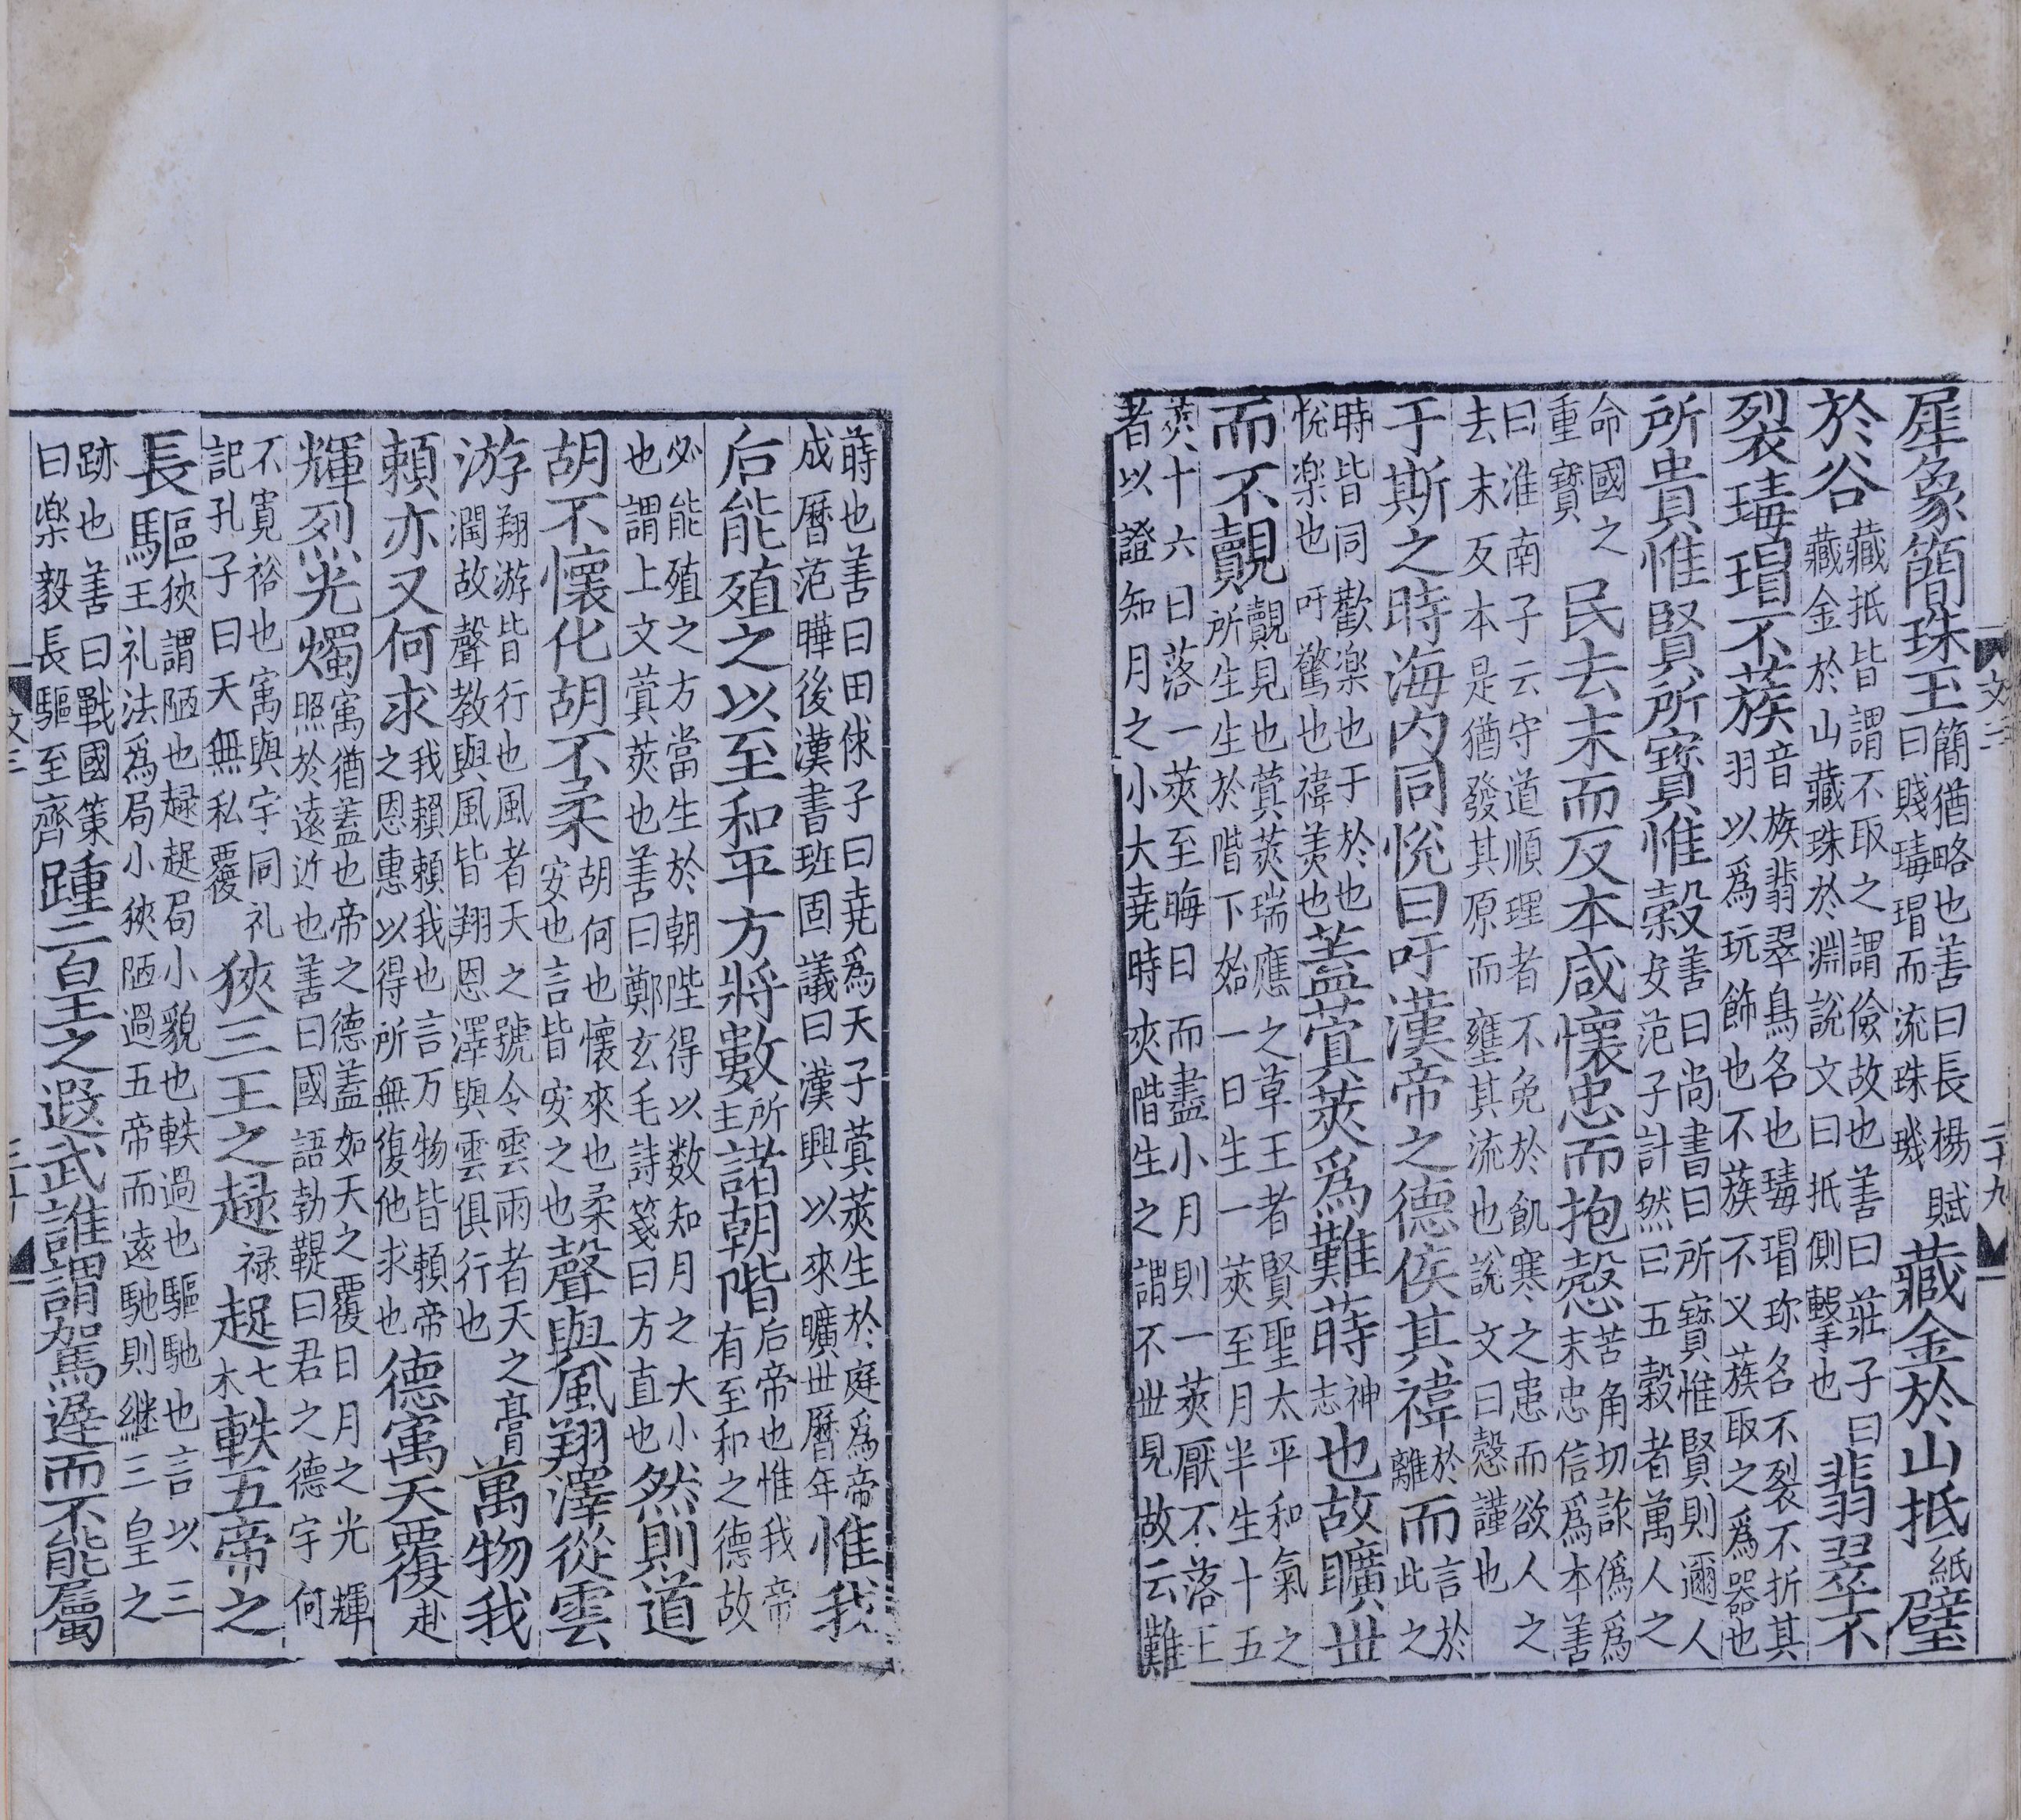 犀象簡珠玉簡猶略也善曰長楊賦曰賤瑇瑁而流珠璣藏金於山抵紙璧
於谷藏抵皆謂不取之謂儉故也善曰莊子曰藏金於山藏珠於淵說文曰抵側擊也翡翠不
裂瑇瑁不蔟音族翡翠鳥名也瑇瑁珎名不裂不折其羽以爲玩飾也不蔟不乂蔟取之爲器也
所貴惟賢所寶惟穀善曰尚書曰所寶惟賢則邇人安范子計然曰五穀者萬人之
命國之重寶民去末而反本咸懷忠而抱慤苦角切詐僞爲末忠信爲本善
曰淮南子云守道順理者不免於飢寒之患而欲人之去末反本是猶發其原而壅其流也說文曰慤謹也
于斯之時海內同悅曰吁漢帝之德侯其禕於離而言於此之
時皆同歡楽也于於也悅楽也吁驚也禕美也蓋蓂莢爲難蒔神志也故曠丗
而不覿覿見也蓂莢瑞應之草王者賢聖太平和氣之所生生於階下始一日生一莢至月半生十五
莢十六日落一莢至晦日而盡小月則一莢厭不落王者以證知月之小大堯時夾階生之謂不丗見故云難
蒔也善曰田俅子曰堯爲天子蓂莢生於庭爲帝成曆范曄後漢書班固議曰漢興以來曠丗曆年惟我
后能殖之以至和平方將數所主諸朝階后帝也惟我帝有至和之德故
必能殖之方當生於朝陛得以数知月之大小也謂上文蓂莢也善曰鄭玄毛詩箋曰方直也然則道
胡不懷化胡不柔胡何也懷來也柔安也言皆安之也聲與風翔澤從雲
游翔游皆行也風者天之號令雲雨者天之膏潤故聲教與風皆翔恩澤與雲俱行也萬物我
賴亦又何求我賴賴我也言万物皆賴帝之恩惠以得所無復他求也德㝢天覆赴
輝烈光燭㝢猶蓋也帝之德蓋如天之覆日月之光輝照於遠近也善曰國語勃鞮曰君之德宇何
不寬裕也㝢與宇同礼記孔子曰天無私覆狹三王之趢禄起七木軼五帝之
長驅狹謂陋也趢起局小貌也軼過也驅馳也言以三王礼法爲局小狹陋過五帝而遠馳則継三皇之
跡也善曰戰國策曰楽毅長驅至齊踵二皇之遐武誰謂駕遅而不能屬